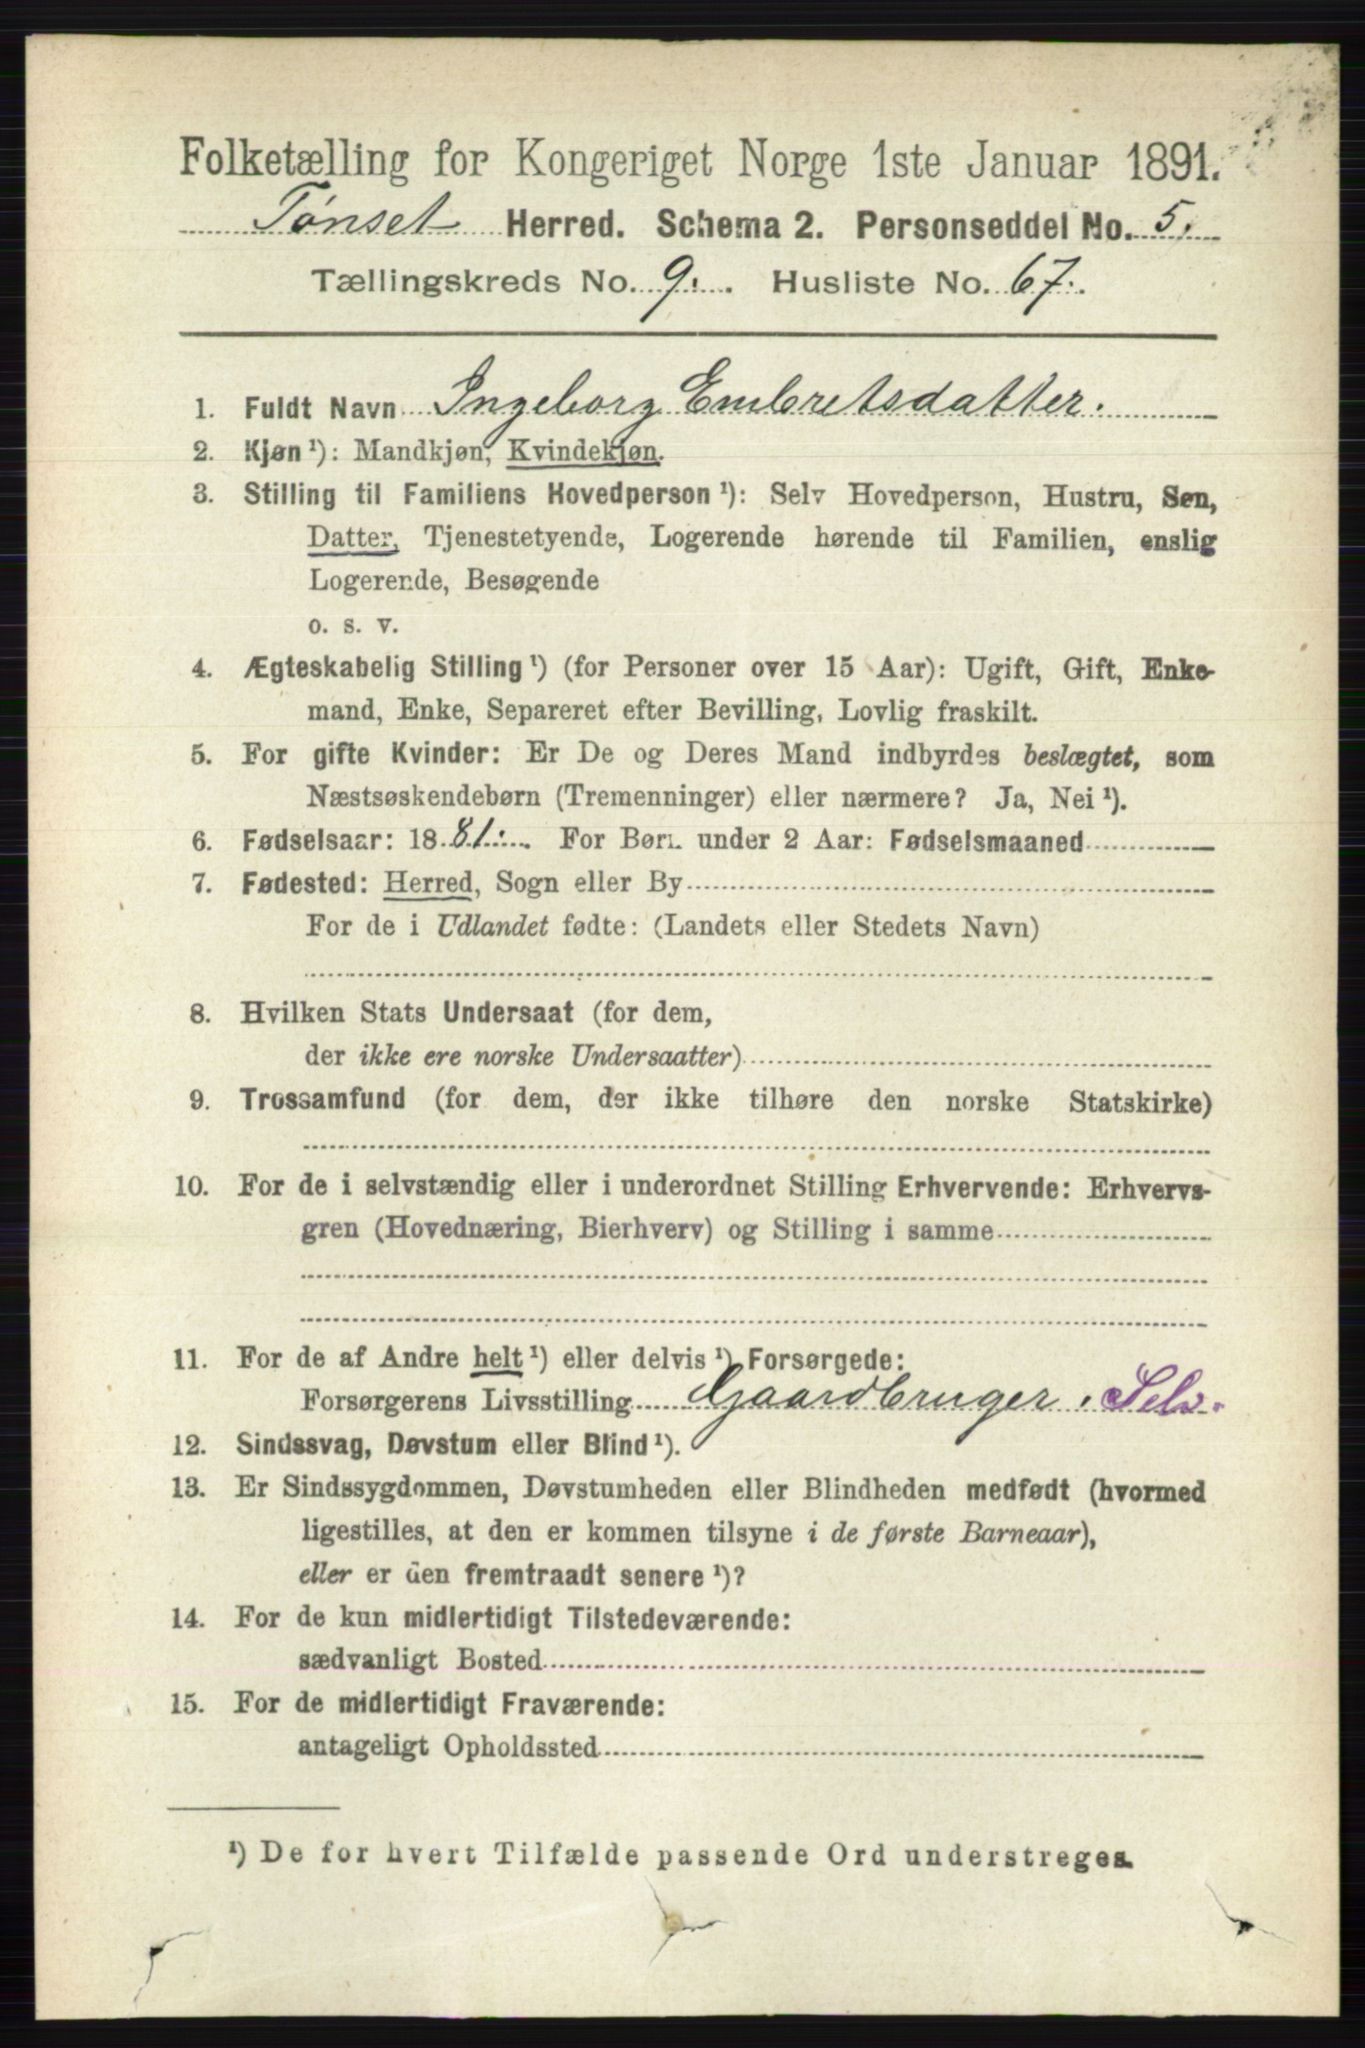 Folketælling for Kongeriget Norge 1ste Januar 1891.
Tønset Herred. Schema 2. Personseddel No. 5.
Tællingskreds No. 9. Husliste No. 67.
1. Fuldt Navn Ingeborg Embretsdatter.
2. Kjøn ¹): Mandkjøn, Kvindekjøn.
3. Stilling til Familiens Hovedperson ¹): Selv Hovedperson, Hustru, Søn,
Datter, Tjenestetyende, Logerende hørende til Familien, enslig
Logerende, Besøgende
o. s. v.
4. Ægteskabelig Stilling ¹) (for Personer over 15 Aar): Ugift, Gift, Enke-
mand, Enke, Separeret efter Bevilling, Lovlig fraskilt.
5. For gifte Kvinder: Er De og Deres Mand indbyrdes beslægtet, som
Næstsøskendebørn (Tremenninger) eller nærmere? Ja, Nei ¹).
6. Fødselsaar: 1881. For Børn under 2 Aar: Fødselsmaaned
7. Fødested: Herred, Sogn eller By
For de i Udlandet fødte: (Landets eller Stedets Navn)
8. Hvilken Stats Undersaat (for dem,
der ikke ere norske Undersaatter)
9. Trossamfund (for dem, der ikke tilhøre den norske Statskirke)
10. For de i selvstændig eller i underordnet Stilling Erhvervende: Erhvervs-
gren (Hovednæring, Bierhverv) og Stilling i samme
11. For de af Andre helt ¹) eller delvis ¹) Forsørgede:
Forsørgerens Livsstilling Gaardbruger. Selv.
12. Sindssvag, Døvstum eller Blind ¹).
13. Er Sindssygdommen, Døvstumheden eller Blindheden medfødt (hvormed
ligestilles, at den er kommen tilsyne i de første Barneaar),
eller er den fremtraadt senere ¹)?
14. For de kun midlertidigt Tilstedeværende:
sædvanligt Bosted
15. For de midlertidigt Fraværende:
antageligt Opholdssted
¹) De for hvert Tilfælde passende Ord understreges.